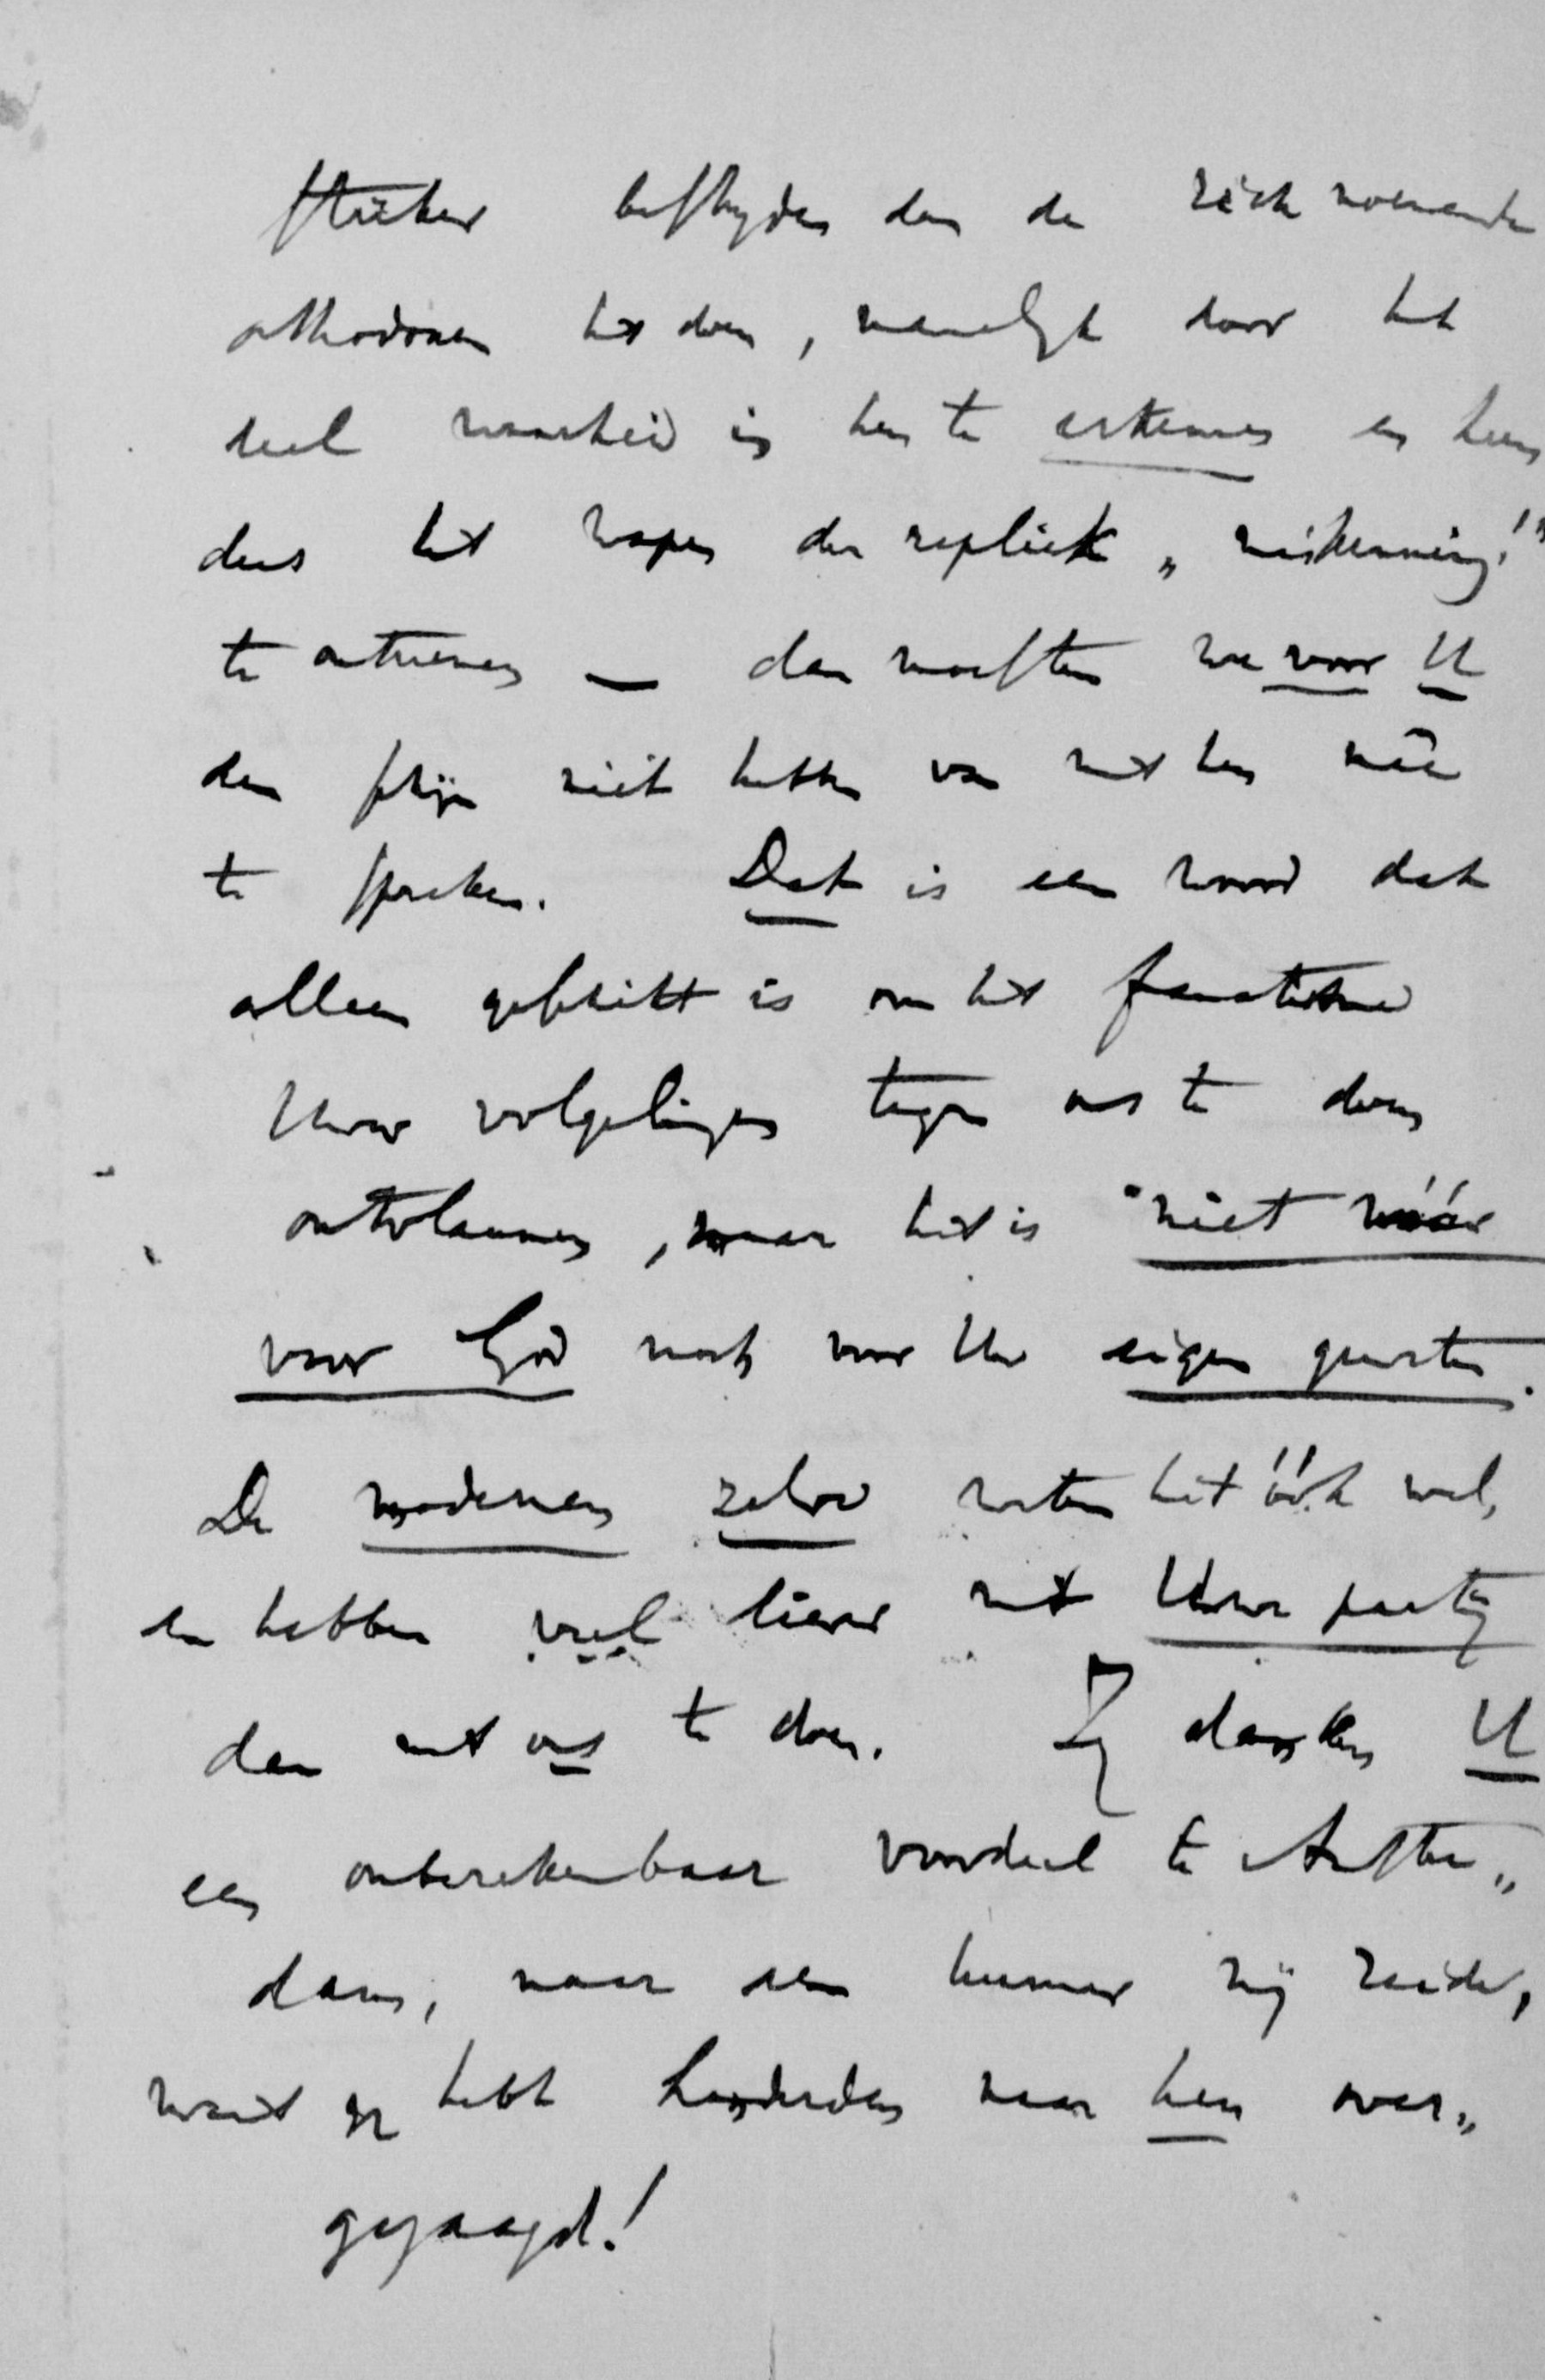 sterker bestryden dan de zich noemende
orthodoxen het doen, namelyk door het
deel waarheid in hen te erkennen en hun
dus het wapen der repliek „miskenning!”
te ontnemen — dan moesten we voor U
den schijn niet hebben van met hen meê
te spreken. Dat is een woord dat
alleen geschikt is om het fanatisme
Uwer volgelingen tegen ons te doen
ontvlammen, maar het is niet wáár
voor God noch voor Uw eigen geweten.
De modernen zelve weten het óók wel,
en hebben veel liever met Uwe party
dan met ons te doen. Zy danken U
een onberekenbaar voordeel te Amster„
dam, naar een hunner mij zeide,
want gy hebt honderden naar hen over„
gejaagd!